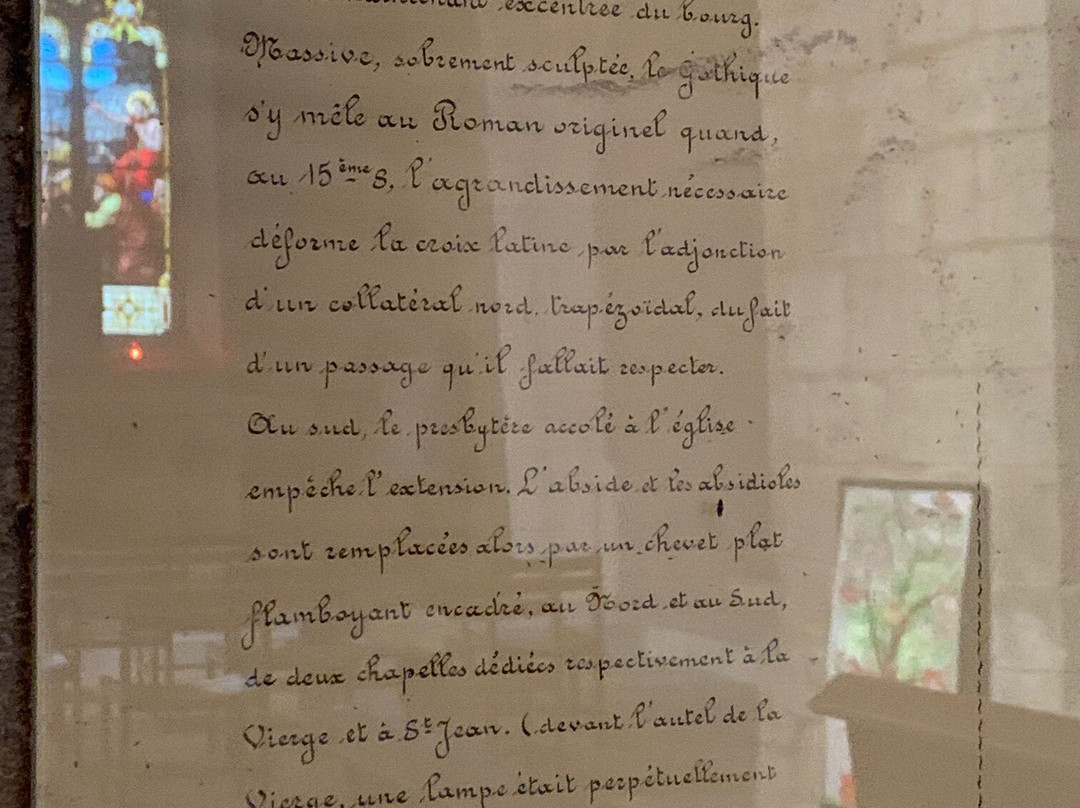 maintenant excentrée du bourg.
Massive, sobrement sculptée, le Gothique
s'y mêle au Roman originel quand,
au 15ème S, l'agrandissement nécessaire
déforme la croix latine par l'adjonction
d'un collatéral nord, trapézoïdal, du fait
d'un passage qu'il fallait respecter.
Au sud, le presbytère accolé à l'église
empêche l'extension. L'abside et les absidioles
sont remplacées alors par un chevet plat
flamboyant encadré, au Nord et au Sud,
de deux chapelles dédiées respectivement à la
Vierge et à St Jean. (devant l'autel de la
Vierge, une lampe était perpétuellement